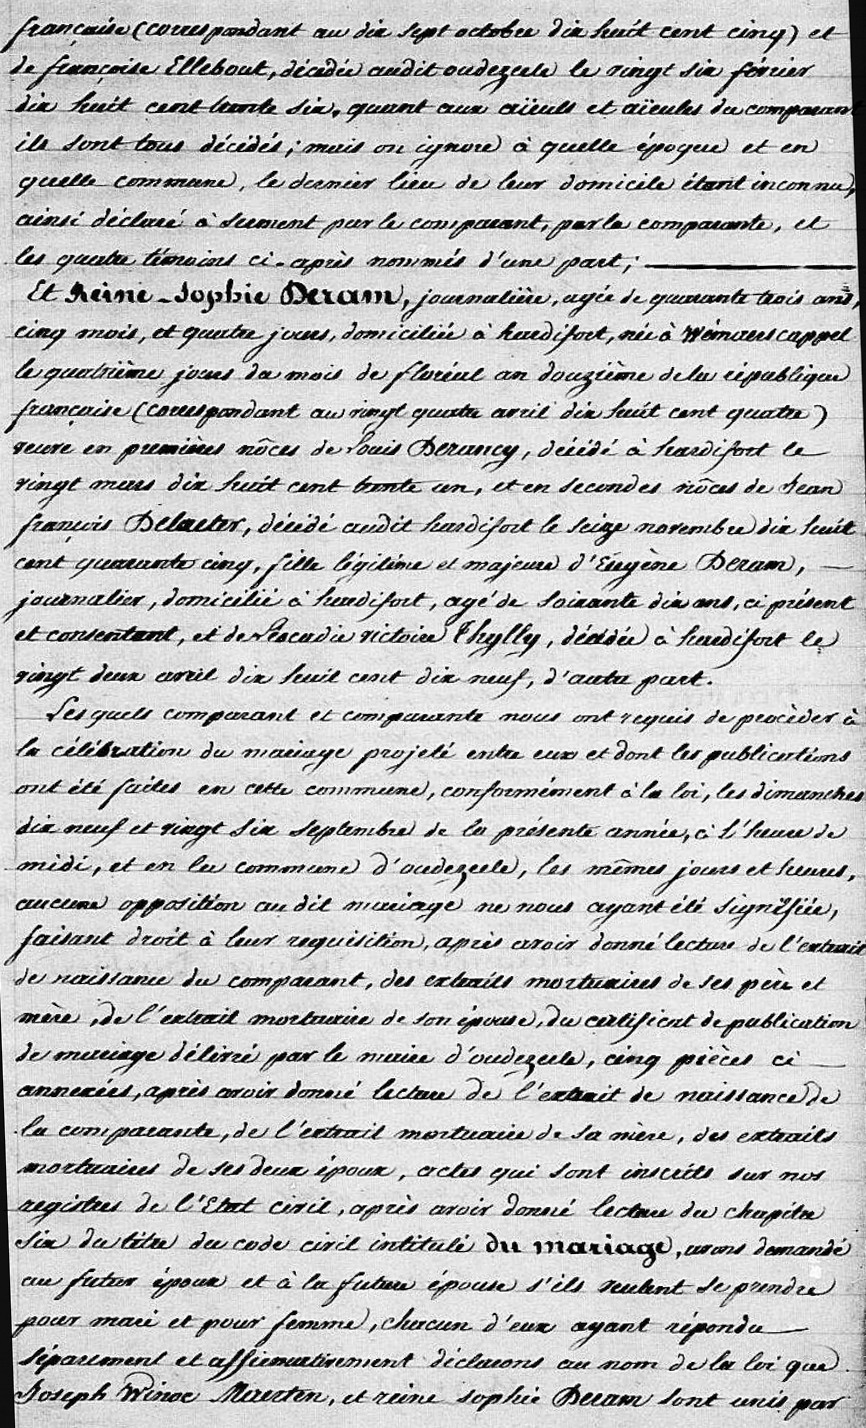 française (correspondant au dix sept octobre dix huit cent cinq) et
de françoise Ellebout, décédée audit oudezeele le vingt six février
dix huit cent trente six, quant aux aïeuls et aïeules du comparant
ils sont tous décédés; mais on ignore à quelle époque et en
quelle commune, le dernier lieu de leur domicile étant inconnu,
ainsi déclaré à serment par le comparant, par la comparante, et
les quatre témoins ci-après nommés d'une part;
Et Reine-Sophie Deram, journalière, agée de quarante trois ans,
cinq mois, et quatre jours, domiciliée à hardifort, née à Wémaerscappel
le quatrième jour du mois de floréal an douzième de la république
française (correspondant au vingt quatre avril dix huit cent quatre)
veuve en premières nôces de Louis Derancy, décédé à hardifort le
vingt mars dix huit cent trente un, et en secondes nôces de Jean
françois Delaeter, décédé audit hardifort le seize novembre dix huit
cent quarante cinq, fille légitime et majeure d'Eugène Deram,
journalier, domicilié à hardifort, agé de soixante dix ans, ci présent
et consentant, et de Léocadie victoire Thylly, décédée à hardifort le
vingt deux avril dix huit cent dix neuf, d'autre part.
Les quels comparant et comparante nous ont requis de procèder à
la célébration du mariage projeté entre eux et dont les publications
ont été faites en cette commune, conformément à la loi, les dimanches
dix neuf et vingt six septembre de la présente année, à l'heure de
midi, et en la commune d'oudezeele, les mêmes jours et heures,
aucune opposition au dit mariage ne nous ayant été signifiée,
faisant droit à leur requisition, après avoir donné lecture de l'extrait
de naissance du comparant, des extraits mortuaires de ses père et
mère, de l'extrait mortuaire de son épouse, du certificat de publication
de mariage délivré par le maire d'oudezeele, cinq pièces ci
annexées, après avoir donné lecture de l'extrait de naissance de
la comparante, de l'extrait mortuaire de sa mère, des extraits
mortuaires de ses deux époux, actes qui sont inscrits sur nos
registres de l'Etat civil, après avoir donné lecture du chapitre
six du titre du code civil intitulé du mariage, avons demandé
au futur époux et à la future épouse s'ils veulent se prendre
pour mari et pour femme, chacun d'eux ayant répondu
séparement et affirmativement déclarons au nom de la loi que
Joseph Winoc Maerten, et reine sophie Deram sont unis par